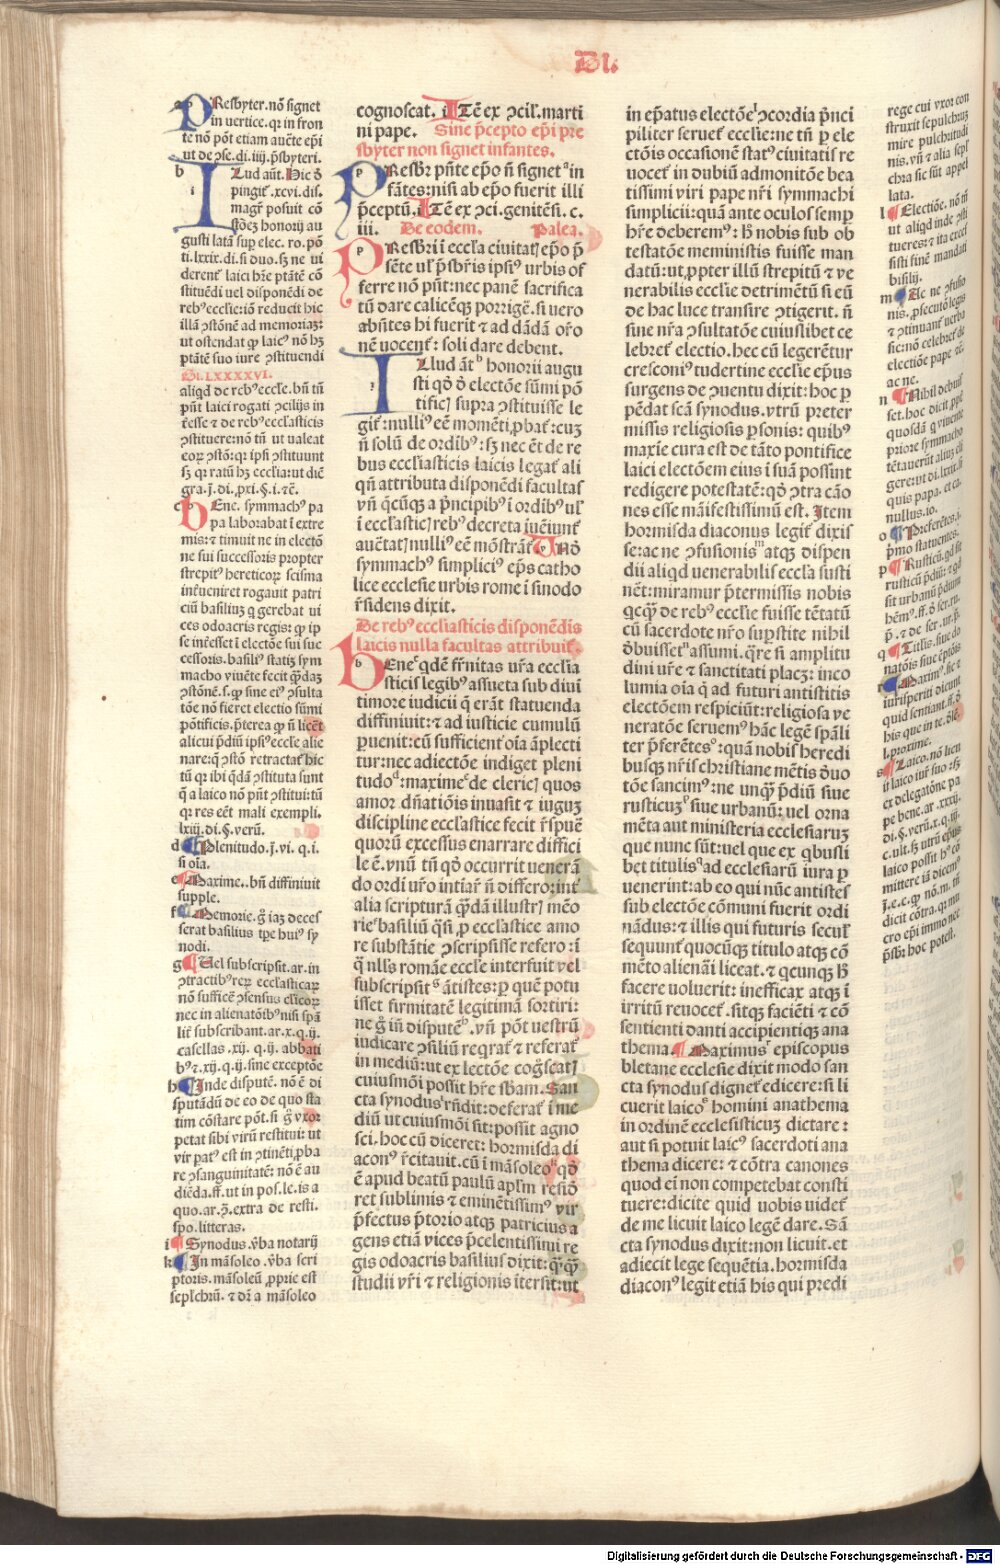 Di.
PResbyter. nō signet
in uertice. qꝛ in fron
te nō pōt etiam auēte ep̄i
ut de ꝯse. di. iiij. p̄sbyteri.
b ILlud aūt. Hic ō
i pingit᷑. xcvi. dis.
magr̄ posuit cō
gusti latā sup elec. ro. pō
ti. lxxix. di. si duo. sꝫ ne ui
derent᷑ laici hr̄e ptātē cō
stituēdi uel disponēdi de
reb᷒ eccl̄ie: iō reducit hic
illā ꝯstōnē ad memoriaꝫ:
ut ostendat ꝙ laic᷒ nō hꝫ
ptātē suo iure ꝯstituendi
Di. LXXXXVI.
aliqd de reb᷒ eccl̄e. bn̄ tn̄
pn̄t laici rogati ꝯcilijs in
r̄esse ⁊ de reb᷒ eccl̄asticis
ꝯstituere: nō tn̄ ut ualeat
eoꝝ ꝯstō: qꝛ ip̄i ꝯstituunt
sꝫ qꝛ ratū hꝫ eccl̄ia: ut diē
gra. j. di. ꝓxi. §. i. ⁊ē.
c bEne. symmach᷒ pa
pa laborabat ī extre
mis: ⁊ timuit ne in electō
ne sui successoris propter
strepit᷒ hereticoꝝ scisma
inf̄ueniret rogauit patri
ciū basiliuꝫ q̄ gerebat ui
ces odoacris regis: ꝙ ip
se int̄esset ī electōe sui suc
cessoris. basili᷒ statiꝫ sym
macho viuēte fecit q̄ꝫdaꝫ
ꝯstōnē. s. ꝙ sine ei᷒ ꝯsulta
tōe nō fieret electio sūmi
pōtificis. p̄terea ꝙ n̄ licēt
alicui p̄diū ip̄i᷒ eccl̄e alie
nare: q̄ ꝯstō retractat᷑ hic
tū qꝛ ibi q̄dā ꝯstituta sunt
q̄ a laico nō pn̄t ꝯstitui: tū
qꝛ res eēt mali exempli.
lxiij. di. §. verū.
d Plenitudo. j. vi. q. i.
si oīa.
e Maxime. bn̄ diffiniuit
supple.
f Memorie. g̊ iaꝫ deces
serat basilius tp̄e hui᷒ sy
nodi.
g Uel subscripsit. ar. in
ꝯtractib᷒ reꝝ ecclasticaꝝ
nō sufficē ꝯsensus cl̄icoꝝ
nec in alienatōib᷒ nisi spāl
lit᷑ subscribant. ar. x. q. ij.
casellas. xij. q. ij. abbati
b᷒ ⁊. xij. q. ij. sine exceptōe
h Inde disputē. nō ē di
sputādū de eo de quo sta
tim cōstare pōt. si g̊ vxor
petat sibi virū restitui: ut
vir pat᷑ est in ꝯtinēti ꝓba
re ꝯsanguinitatē: nō ē au
diēda. ff. ut in pos. le. is a
quo. ar. ꝯ. extra de resti.
spo. litteras.
i Synodus. v̄ba notarij
k In māsoleo. v̄ba scri
ptoris. māsoleū ꝓprie est
sepl̄chrū. ⁊ dr̄ a māsoleo
cognoscat. ITē ex ꝯcil̓. marti
ni pape. Sine p̄cepto ep̄i pre
sbyter non signet infantes.
PResbr̄ pn̄te ep̄o n̄ signet in
fātes: nisi ab ep̄o fuerit illi
p̄ceptū. ITē ex ꝯci. genitēsi. c.
iii. De eodem. Palea.
PResbr̄i ī eccl̄a ciuitat᷑ ep̄o p̄
sēte ul̓ p̄sbr̄is ip̄i᷒ urbis of
ferre nō pn̄t: nec panē sacrifica
tū dare calicēqꝫ porrigē. si uero
abn̄tes hi fuerit ⁊ ad dādā or̄o
nē uocent᷑: soli dare debent.
ILlud āt honorii augu
sti qd̄ ō electōe sūmi pō
tific᷑ supra ꝯstituisse le
git᷑: nulli᷒ eē momēti ꝓbat᷑: cuꝫ
n̄ solū de ordib᷒: sꝫ nec ēt de re
bus eccl̄iasticis laicis legat᷑ ali
qn̄ attributa disponēdi facultas
vn̄ q̄cūqꝫ a p̄ncipib᷒ ī ordib᷒ ul̓
ī eccl̄astic᷑ reb᷒ decreta iuēiunt᷑
auētat᷑ nulli᷒ eē mōstrāt᷑. Vnō
symmach᷒ simplici᷒ ep̄s catho
lice ecclesie urbis rome ī sinodo
r̄sidens dixit.
De reb᷒ eccl̄iasticis disponēdis
laicis nulla facultas attribuit᷑.
bEne qdē fr̄nitas ur̄a eccl̄ia
sticis legib᷒ assueta sub diuī
timore iudicii q̄ erāt statuenda
diffiniuit: ⁊ ad iusticie cumulū
ꝑuenit: cū sufficient᷑ oīa āplecti
tur: nec adiectōe indiget pleni
tudo: maxime de cleric᷑ quos
amor dn̄atiōis inuasit ⁊ iuguꝫ
discipline eccl̄astice fecit r̄spuē
quorū excessus enarrare diffici
le ē. vnū tū qd̄ occurrit uenerā
do ordi ur̄o intiar̄ n̄ differo: int᷑
alia scripturā q̄dā illustr᷑ mēo
rie basiliū q̄si ꝓ eccl̄astice amo
re substātie ꝯscripsisse refero: ī
q̄ nll̓s romāe eccl̄e interfuit vel
subscripsit ātistes: ꝑ quē potu
isset firmitatē legitimā sortiri:
ne g̊ in̄ disputē. vn̄ pōt uestrū
iudicare ꝯsiliū reqrat᷑ ⁊ referat᷑
in mediū: ut ex lectōe cog̊scat᷑
cuiusmōi possit hr̄e sb̄am. San
cta synodus rn̄dit: deferat᷑ ī me
diū ut cuiusmōi sit: possit agno
sci. hoc cū diceret: hormisda di
acon᷒ r̄citauit. cū ī māsoleo qd̄
ē apud beatū paulū ap̄lm resiō
ret sublimis ⁊ eminētissim᷒ vir
p̄fectus p̄torio atqꝫ patricius a
gens etiā vices p̄celentissimi re
gis odoacris basilius dixit: q̄ꝫq̄ꝫ
studii vr̄i ⁊ religionis itersit: ut
in ep̄atus electōe ꝯcordia p̄nci
piliter seruet᷑ eccl̄ie: ne tn̄ ꝑ ele
ctōis occasionē stat᷒ ciuitatis re
uocet᷑ in dubiū admonitōe bea
tissimi viri pape nr̄i symmachi
simplicii: quā ante oculos semꝑ
hr̄e deberem᷒: h̄ nobis sub ob
testatōe meministis fuisse man
datū: ut ꝓpter illū strepitū ⁊ ve
nerabilis eccl̄ie detrimētū si eū
de hac luce transire ꝯtigerit. n̄
sine nr̄a ꝯsultatōe cuiuslibet ce
lebret᷑ electio. hec cū legerētur
cresconi᷒ tudertine eccl̄ie ep̄us
surgens de ꝯuentu dixit: hoc ꝑ
pēdat scā synodus. vtrū preter
missis religiosis ꝑsonis: quib᷒
maxīe cura est de tāto pontifice
laici electōem eius ī suā possint
redigere potestatē: qd̄ ꝯtra cāo
nes esse māifestissimū est. Item
hormisda diaconus legit᷑ dixis
se: ac ne ꝯfusionis atqꝫ dispen
dii aliqd uenerabilis eccl̄a susti
nēt: miramur p̄termissis nobis
qcq̄ꝫ de reb᷒ eccl̄ie fuisse tētatū
cū sacerdote nr̄o suꝑstite nihil
ōbuisset assumi. q̄re si amplitu
dini ur̄e ⁊ sanctitati placꝫ: inco
lumia oīa q̄ ad futuri antistitis
electōem respiciūt: religiosa ve
neratōe seruem᷒: hāc legē spāli
ter p̄ferētes: quā nobis heredi
busqꝫ nr̄is christiane mētis ōuo
tōe sancim᷒: ne unqꝫ p̄diū siue
rusticuꝫ siue urbanū: uel orna
mēta aut ministeria ecclesiaruꝫ
que nunc sūt: uel que ex qbusli
bet titulis ad ecclesiarū iura ꝑ
uenerint: ab eo qui nūc antistes
sub electōe cōmuni fuerit ordi
nādus: ⁊ illis qui futuris secul̓
sequunt᷑ quocūqꝫ titulo atqꝫ cō
mēto alienāi liceat. ⁊ qcunqꝫ h̄
facere uoluerit: inefficax atqꝫ ī
irritū reuocet᷑. sitqꝫ faciēti ⁊ cō
sentienti danti accipientiqꝫ ana
thema. Maximus episcopus
bletane ecclesie dixit modo san
cta synodus dignet᷑ edicere: si li
cuerit laico homini anathema
in ordinē ecclesisticuꝫ dictare:
aut si potuit laic᷒ sacerdoti ana
thema dicere: ⁊ cōtra canones
quod ei non competebat consti
tuere: dicite quid uobis uidet᷑
de me licuit laico legē dare. Sā
cta synodus dixit: non licuit. et
adiecit lege sequētia. hormisda
diacon᷒ legit etiā his qui predi
rege cui vxor con
struxit sepulchruꝫ
mire pulchritudi
nis. vn̄ ⁊ alia sepl̄
chra sic sūt appel
lata.
l Electiōe. nō tn̄
ut aliqd inde ꝯsti
tueres: ⁊ ita excef
sisti finē mandati
m Ac ne ꝯfusio
nis. ꝓsecutō legis
⁊ ꝯtinuant᷑ uerba
sic: nō celebret᷑ de
electiōe pape ⁊ē.
ac ne.
n Nihil debuis
set. hoc dicit ꝓpt̄
quosdā q̄ viuente
priore symmacho
tētauerūt aliuꝫ eli
gere: ut di. lxxix. si
quis papa. et ca.
nullus. io.
o Preferētes. i.
p̄mo statuentes.
p Rusticū. qd sit
rusticū p̄diū: ⁊ qd
sit urbanū p̄dium
hēm᷒. ff. ō ser. ru.
p̄. ⁊ de ser. ur. p̄.
q Titlis. siue do
natōis siue ēptōis
r Maxim᷒. sic ⁊
iurisperiti dicunt
quid sentiant. ff. ō
his que in te. ōlē.
l. proxime.
s Laico. nō licu
it laico iur̄ suo: sꝫ
ex delegatōne pa
pe bene. ar. xxxij.
di. §. verū. x. q. iij.
c. ult. sꝫ utrū ep̄us
laico possit h᷒ cō
mittere iā dicem᷒
j. e. c. ꝙ nō. m. tn̄
dicit cōtra. qꝛ mi
cro ep̄i immo nec
p̄sbr̄: hoc potest.
Digitalisierung gefördert durch die Deutsche Forschungsgemeinschaft - DFG